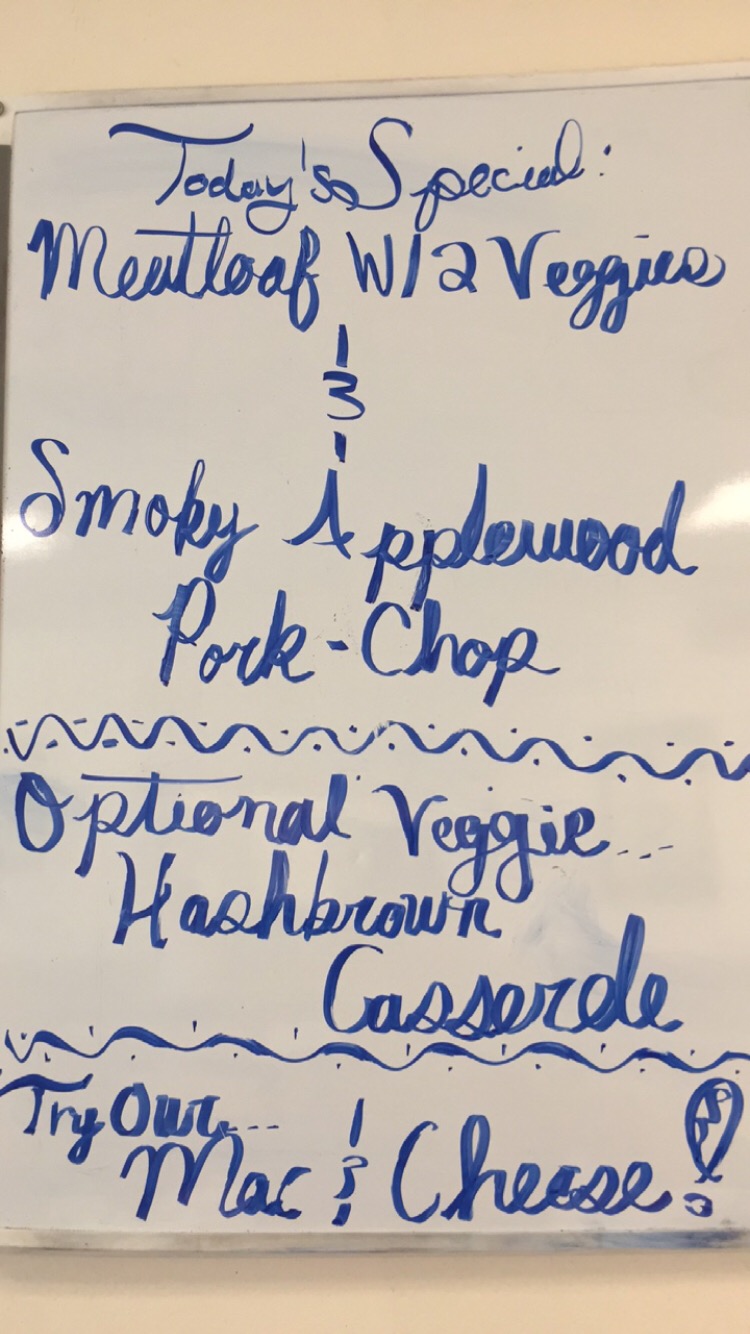 Today's Special:
Meatloaf W/2 Veggies
&
Smoky Applewood
Pork-Chop
Optional Veggie...
Hashbrown
Casserole
Try Our...
Mac & Cheese!